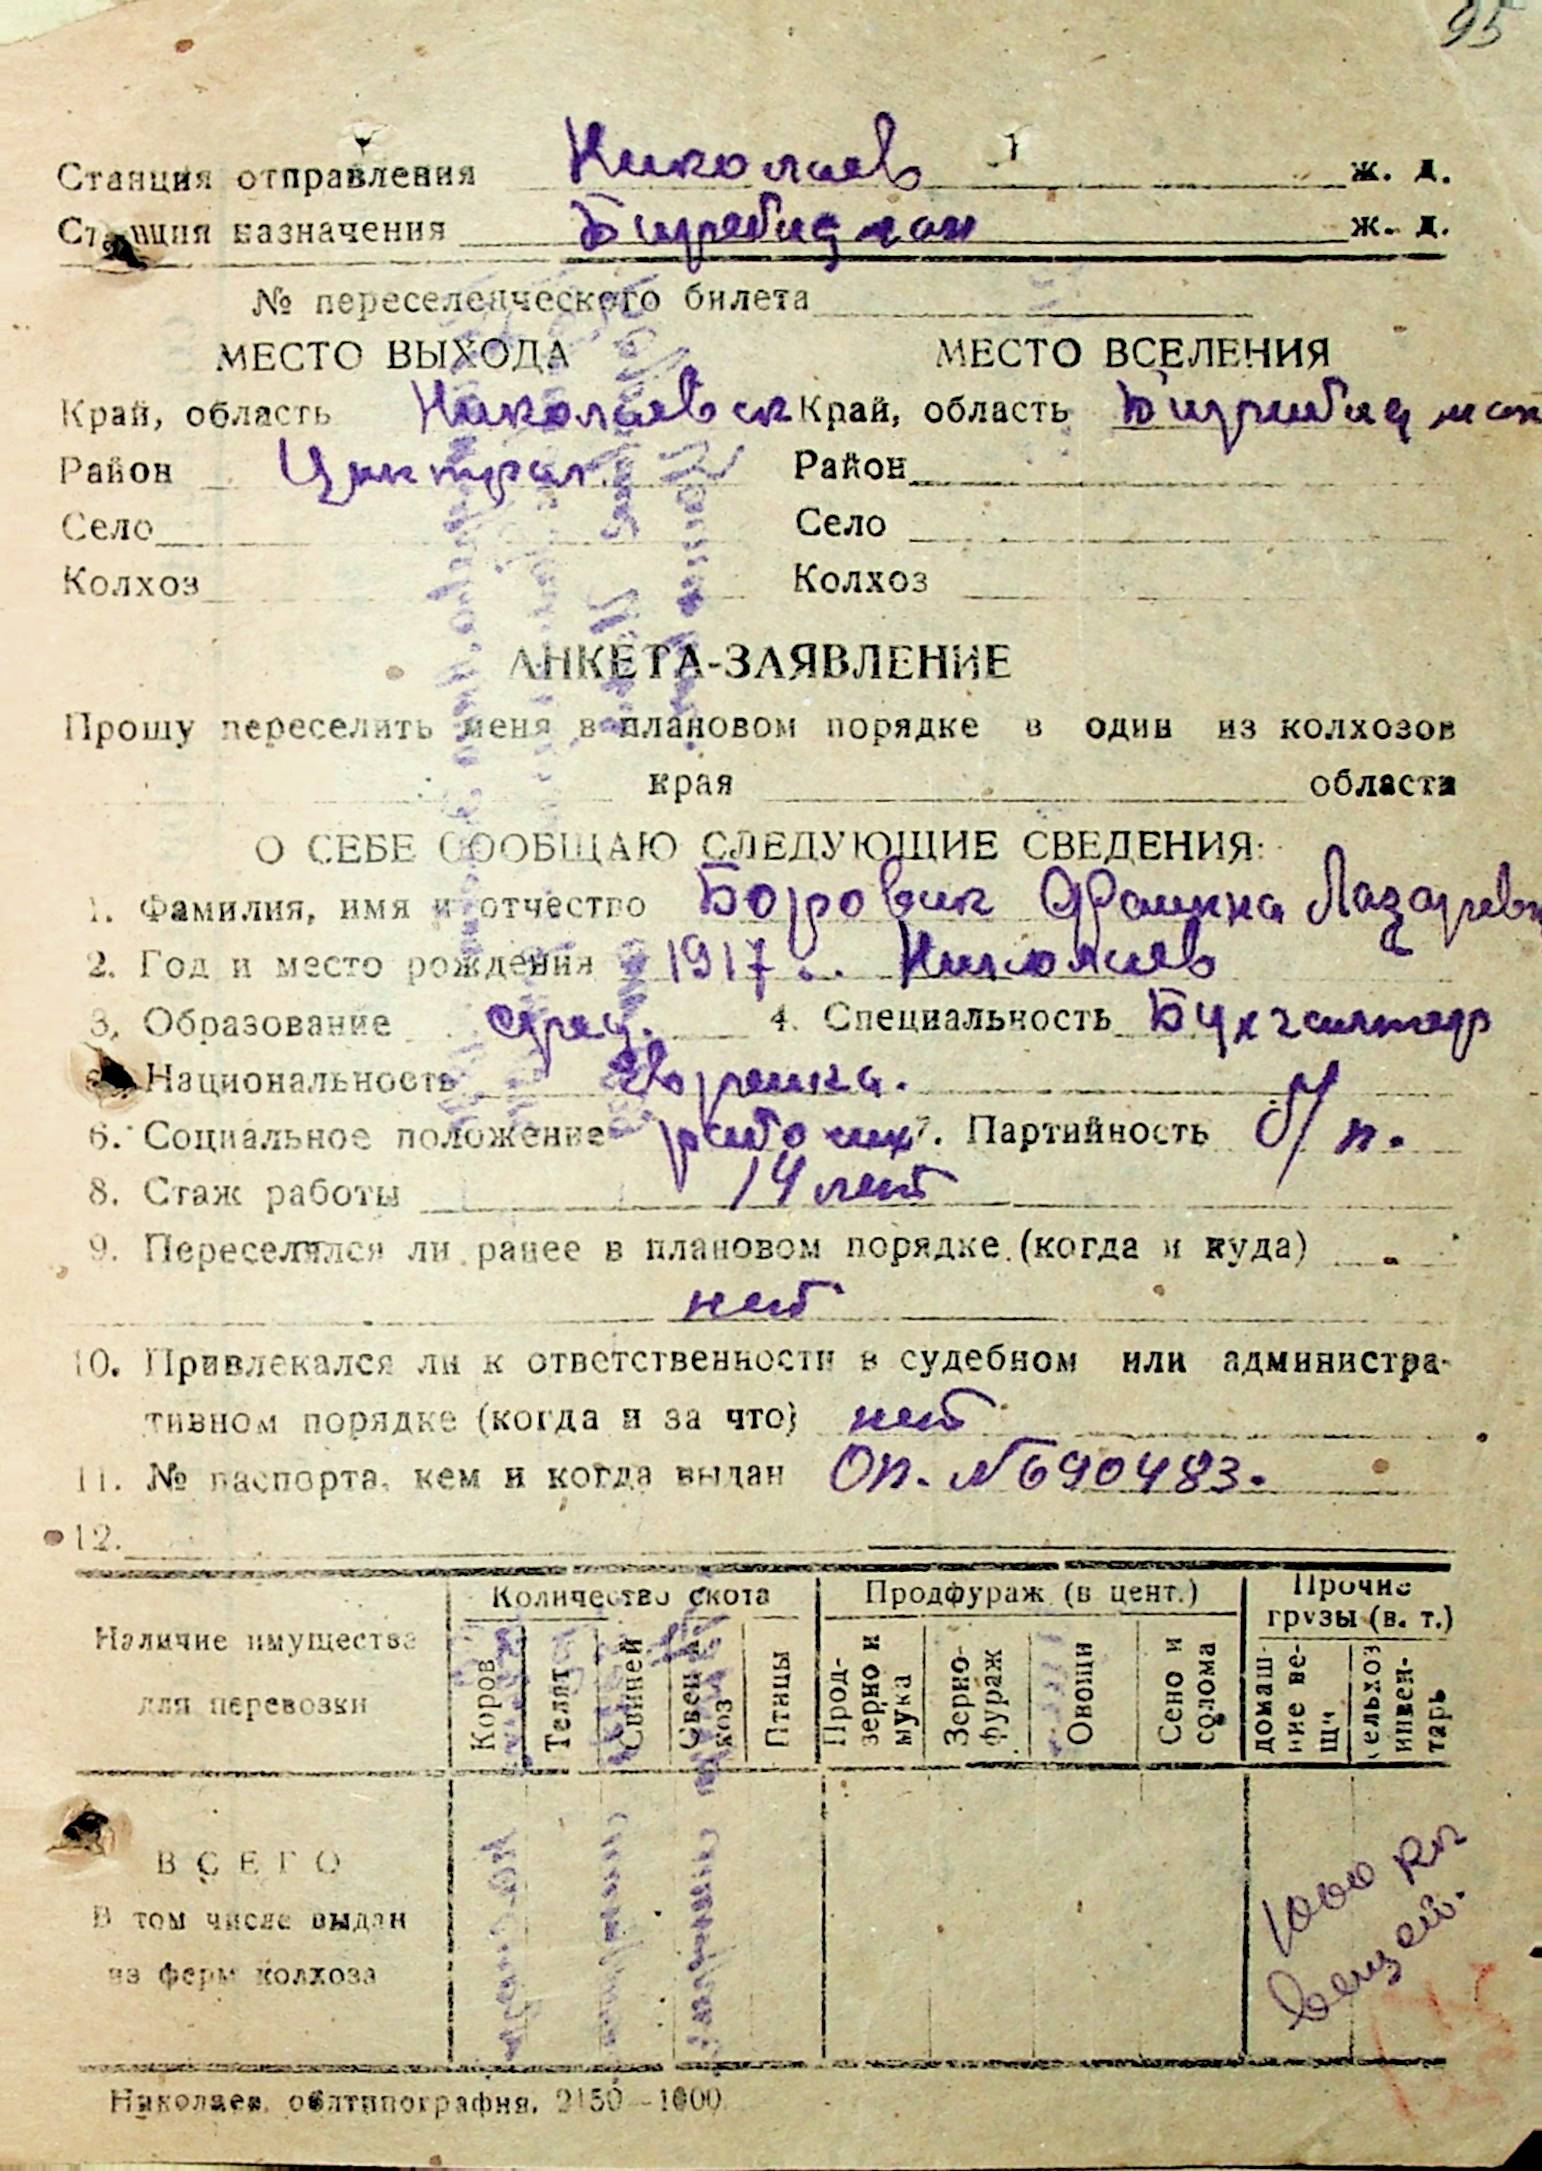 95
Станция отправления Николаев ж. д.
Станция назначения Биробиджан ж. д.
№ переселенческого билета
МЕСТО ВЫХОДА МЕСТО ВСЕЛЕНИЯ
Край, область Николаевск Край, область Биробиджан
Район Централ. Район
Село Село
Колхоз Колхоз
АНКЕТА-ЗАЯВЛЕНИЕ
Прошу переселить меня в плановом порядке в один из колхозов
края области
О СЕБЕ СООБЩАЮ СЛЕДУЮЩИЕ СВЕДЕНИЯ:
1. Фамилия, имя и отчество Боровик Фаинна Лазаревн
2. Год и место рождения 1917 Николаев
3. Образование сред. 4. Специальность Бухгалтер
Национальность Еврейка.
6. Социальное положение рабочих 7. Партийность б/п.
8. Стаж работы 14 лет
9. Переселялся ли ранее в плановом порядке (когда и куда)
нет
10. Привлекался ли к ответственности в судебном или администра-
тивном порядке (когда и за что) нет
11. № паспорта, кем и когда выдан ОП. №690483.
12.
Наличие имущества для перевозки
Количество скота Продфураж (в цент.) Прочие грузы (в. т.)
Коров Телят Свиней Овец и коз Птицы Прод-зерно и мука Зерно-фураж Овощи Сено и солома домаш-ние ве-щи сельхоз инвен-тарь
ВСЕГО
В том числе выдан
из ферм колхоза
1000 кг
вещей.
Николаев, облтипография, 2150—1000